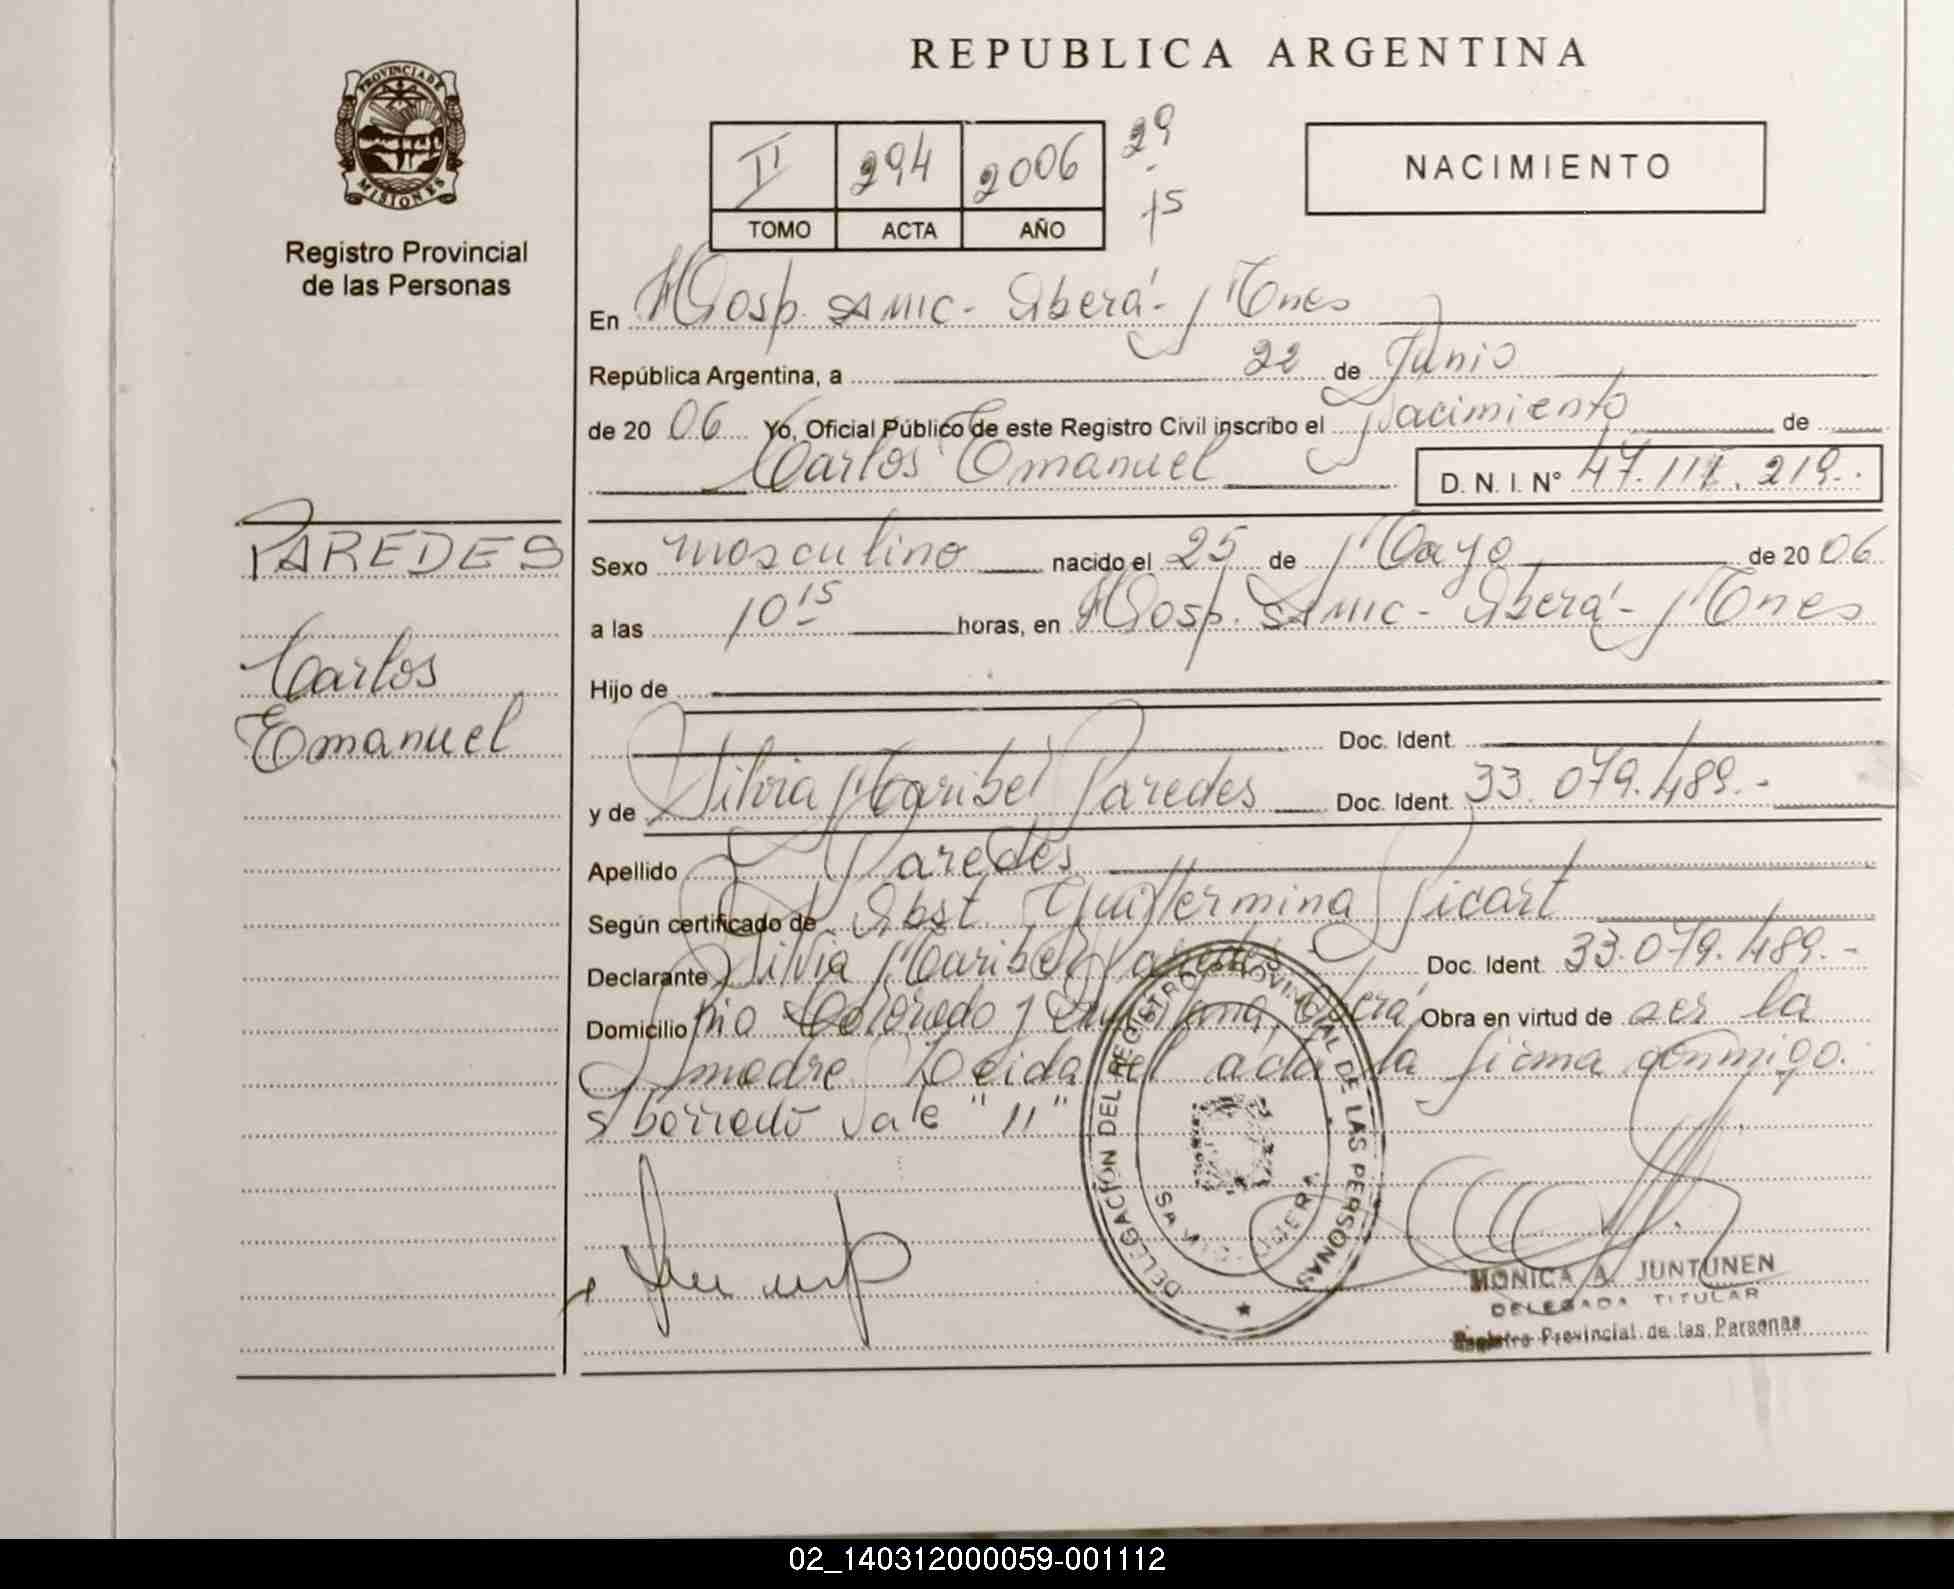 REPUBLICA ARGENTINA
PROVINCIA DE MISIONES
Registro Provincial
de las Personas
II 294 2006 29
- 15
TOMO ACTA AÑO
NACIMIENTO
En Hosp. SAMIC - Oberá - Mnes
República Argentina, a 22 de Junio
de 20 06 Yo, Oficial Público de este Registro Civil inscribo el Nacimiento de
Carlos Emanuel D. N. I. N° 47.111.219.-
PAREDES
Carlos
Emanuel
Sexo masculino nacido el 25 de Mayo de 20 06
a las 10 15 horas, en Hosp. SAMIC - Oberá - Mnes
Hijo de
Doc. Ident.
y de Silvia Maribel Paredes Doc. Ident. 33.079.489.-
Apellido Paredes
Según certificado de Obst. Guillermina Picart
Declarante Silvia Maribel Paredes Doc. Ident. 33.079.489.-
Domicilio Rio Colorado y Oberá Obra en virtud de ser la
madre Leida el acta la firma conmigo.
S/borrado vale "11"
DELEGACIÓN DEL REGISTRO PROVINCIAL DE LAS PERSONAS
MONICA A. JUNTUNEN
DELEGADA TITULAR
Registro Provincial de las Personas
02_140312000059-001112